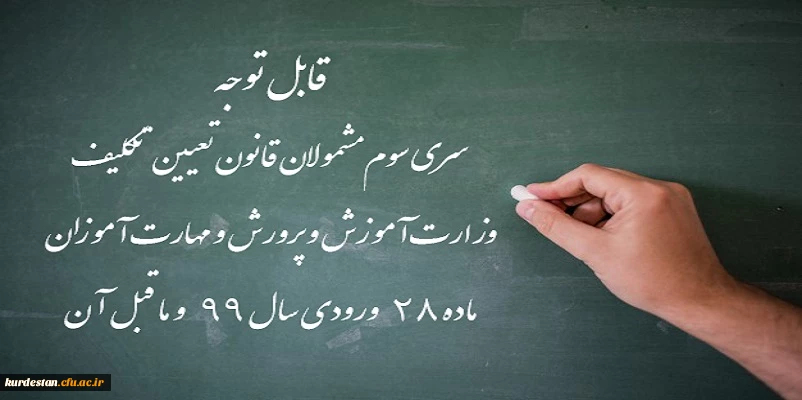 قابل توجه
سری سوم مشمولان قانون تعیین تکلیف
وزارت آموزش و پرورش و مهارت آموزان
ماده ۲۸ ورودی سال ۹۹ و ماقبل آن
kurdestan.cfu.ac.ir